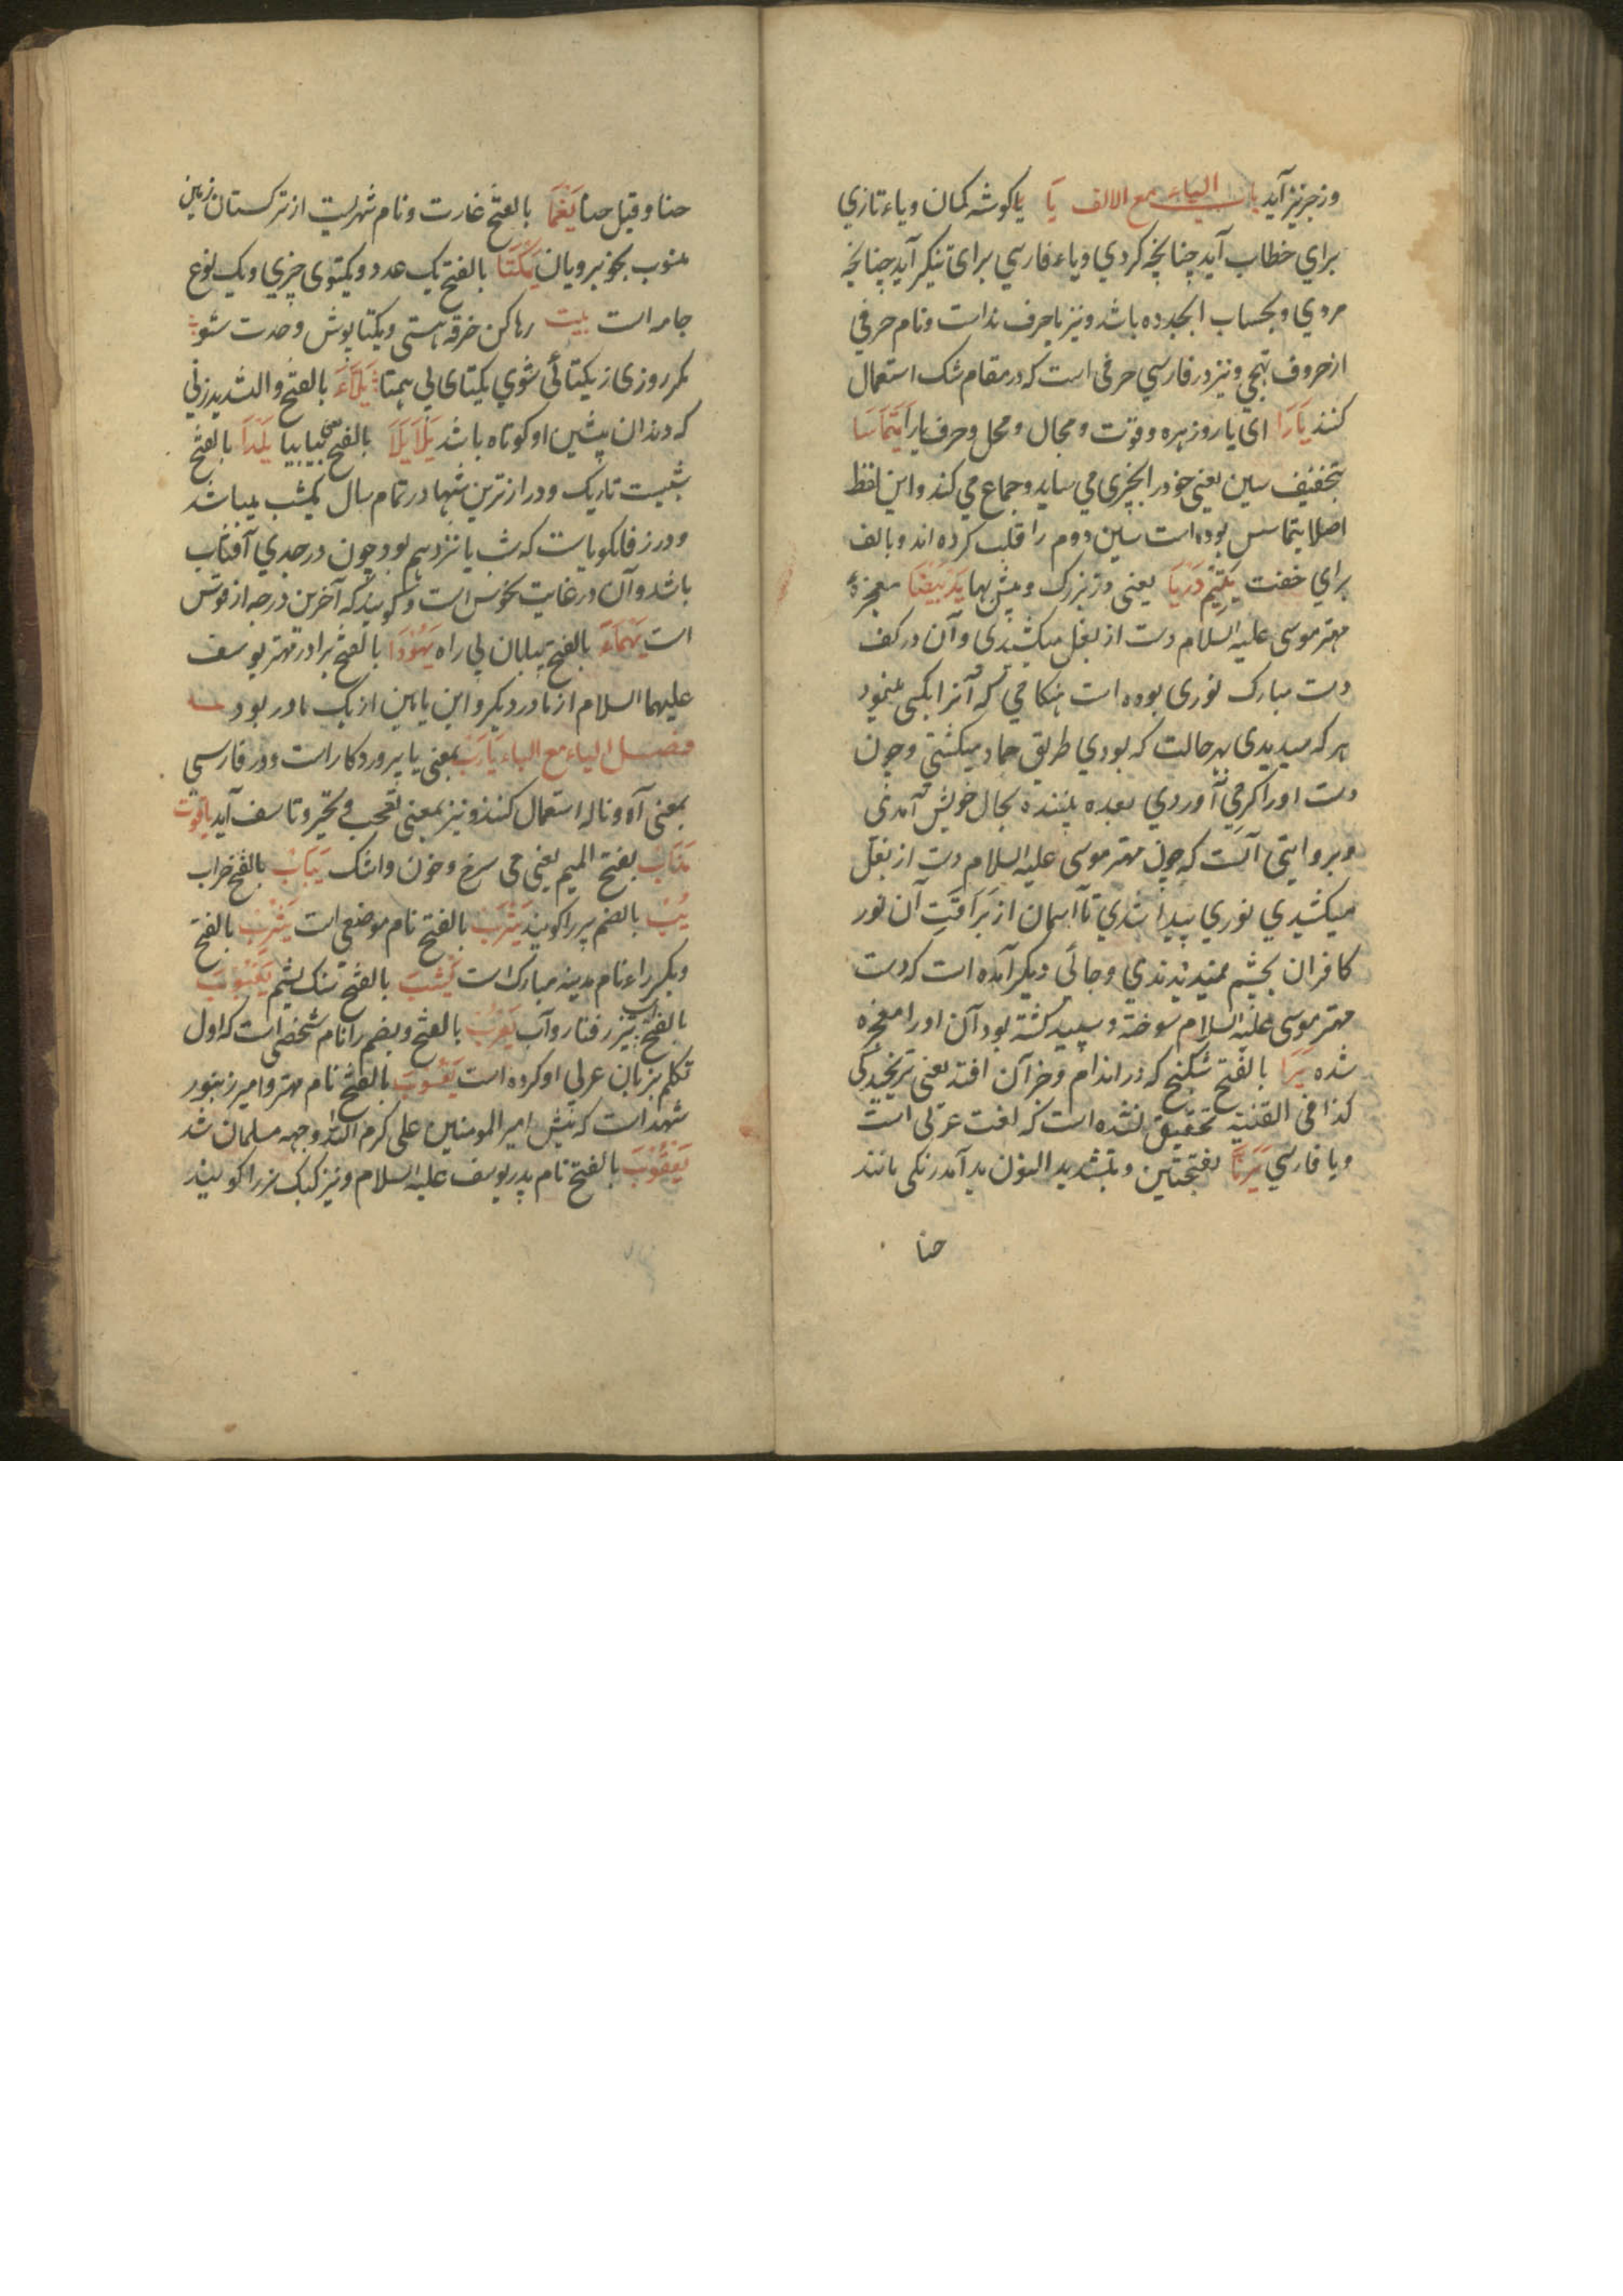 وز جر نیز آید باب الیاء مع الالف یا یا کوشه کمان ویاء تازی
برای خطاب آید چنانچه کردی ویاء فارسی برای تنکیر آید چنانچه
مردی وبحساب ابجد ده باشد ونیز یا حرف نداست ونام حرفی
از حروف تهجی ونیز در فارسی حرفی است که در مقام شک استعمال
کنند یارا ای یا روز بهره وقوت ومجال ومحل وحرف یارا یتماسا
بتخفیف سین یعنی خود را بچیزی می ساید وجماع می کند واین لفظ
اصلا یتماسس بوده است سین دوم را قلب کرده اند وبالف
برای خفت یتیم دریا یعنی در بزرک وبیش بها ید بیضا معجزهٔ
مهتر موسی علیه السلام دست از بغل میکشیدی وآن در کف
دست مبارک نوری بوده است هنکامی که آنرا بکسی بنمود
هر که میدیدی بهر حالت که بودی طریق جماد میکشتی وچون
دست او را کرمی آوردی بعده بیننده بحال خویش آمدی
وبروایتی آنست که چون مهتر موسی علیه السلام دست از بغل
میکشیدی نوری پیدا شدی تا آسمان از براقت آن نور
کافران بچشم ندیدندی وجائی دیکر آمده است که دست
مهتر موسی علیه السلام سوخته وسپید کشته بود آن اورا معجزه
شده یرا بالفتح شکنج که در اندام وجز آن افتد یعنی ترنجیدکی
کذا فی القنیه تحقیق نشده است که لغت عربی است
ویا فارسی یرنا بفتحتین وبتشدید النون بد آمد رنکی مانند
حنا
حنا وقیل حنا یغما بالفتح غارت ونام شهریست از ترکستان زمین
منسوب بخوبرویان یکتا بالفتح یک عدد ویکتوی چیزی ویک نوع
جامه است بیت رها کن خرقه هستی ویکتا پوش وحدت شو
مکر روزی ز یکتائی شوی یکتای بی همتا یلاء بالفتح والتشدید زنی
که دندان پیشین او کوتاه باشد یلا یلا بالفتح یعنی بیا بیا یلدا بالفتح
شبیست تاریک ودراز ترین شبها در تمام سال یکشب میباشد
ودر زفانکویاست که شب یانزدهم بود چون در جدی آفتاب
باشد وآن در غایت نحوس است وکویند که آخرین درجه از قوس
است یهماء بالفتح بیابان بی راه یهودا بالفتح برادر مهتر یوسف
علیهما السلام از مادر دیکر وابن یامین از یک مادر بود
فصل الیاء مع الباء یارب بمعنی یا پروردکار است ودر فارسی
بمعنی آه وناله استعمال کنند ونیز بمعنی تعجب وتحیر وتاسف آید یاقوت
مذاب بفتح المیم یعنی می سرخ وخون واشک یباب بالفتح خراب
یب بالضم پر را کویند یترب بالفتح نام موضعی است یثرب بالفتح
وبکسر راء نام مدینه مبارک است یشب بالفتح سنک یشم یعبوب
بالفتح اسب تیز رفتار وآب یعرب بالفتح وبضم را نام شخصی است که اول
تکلم بزبان عربی او کرده است یعسوب بالفتح نام مهتر وامیر زنبور
شهد است که پیش امیر المومنین علی کرم الله وجهه مسلمان شد
یعقوب بالفتح نام پدر یوسف علیه السلام ونیز کبک نر را کویند